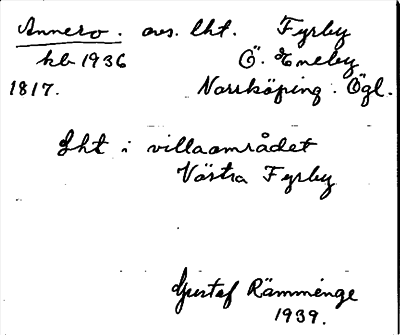 Annero. avs. lht. Fyrby
hb 1936 Ö. Eneby
1817. Norrköping. Ögl.
Lht i villaområdet
Västra Fyrby
Gustaf Rämminge
1939.